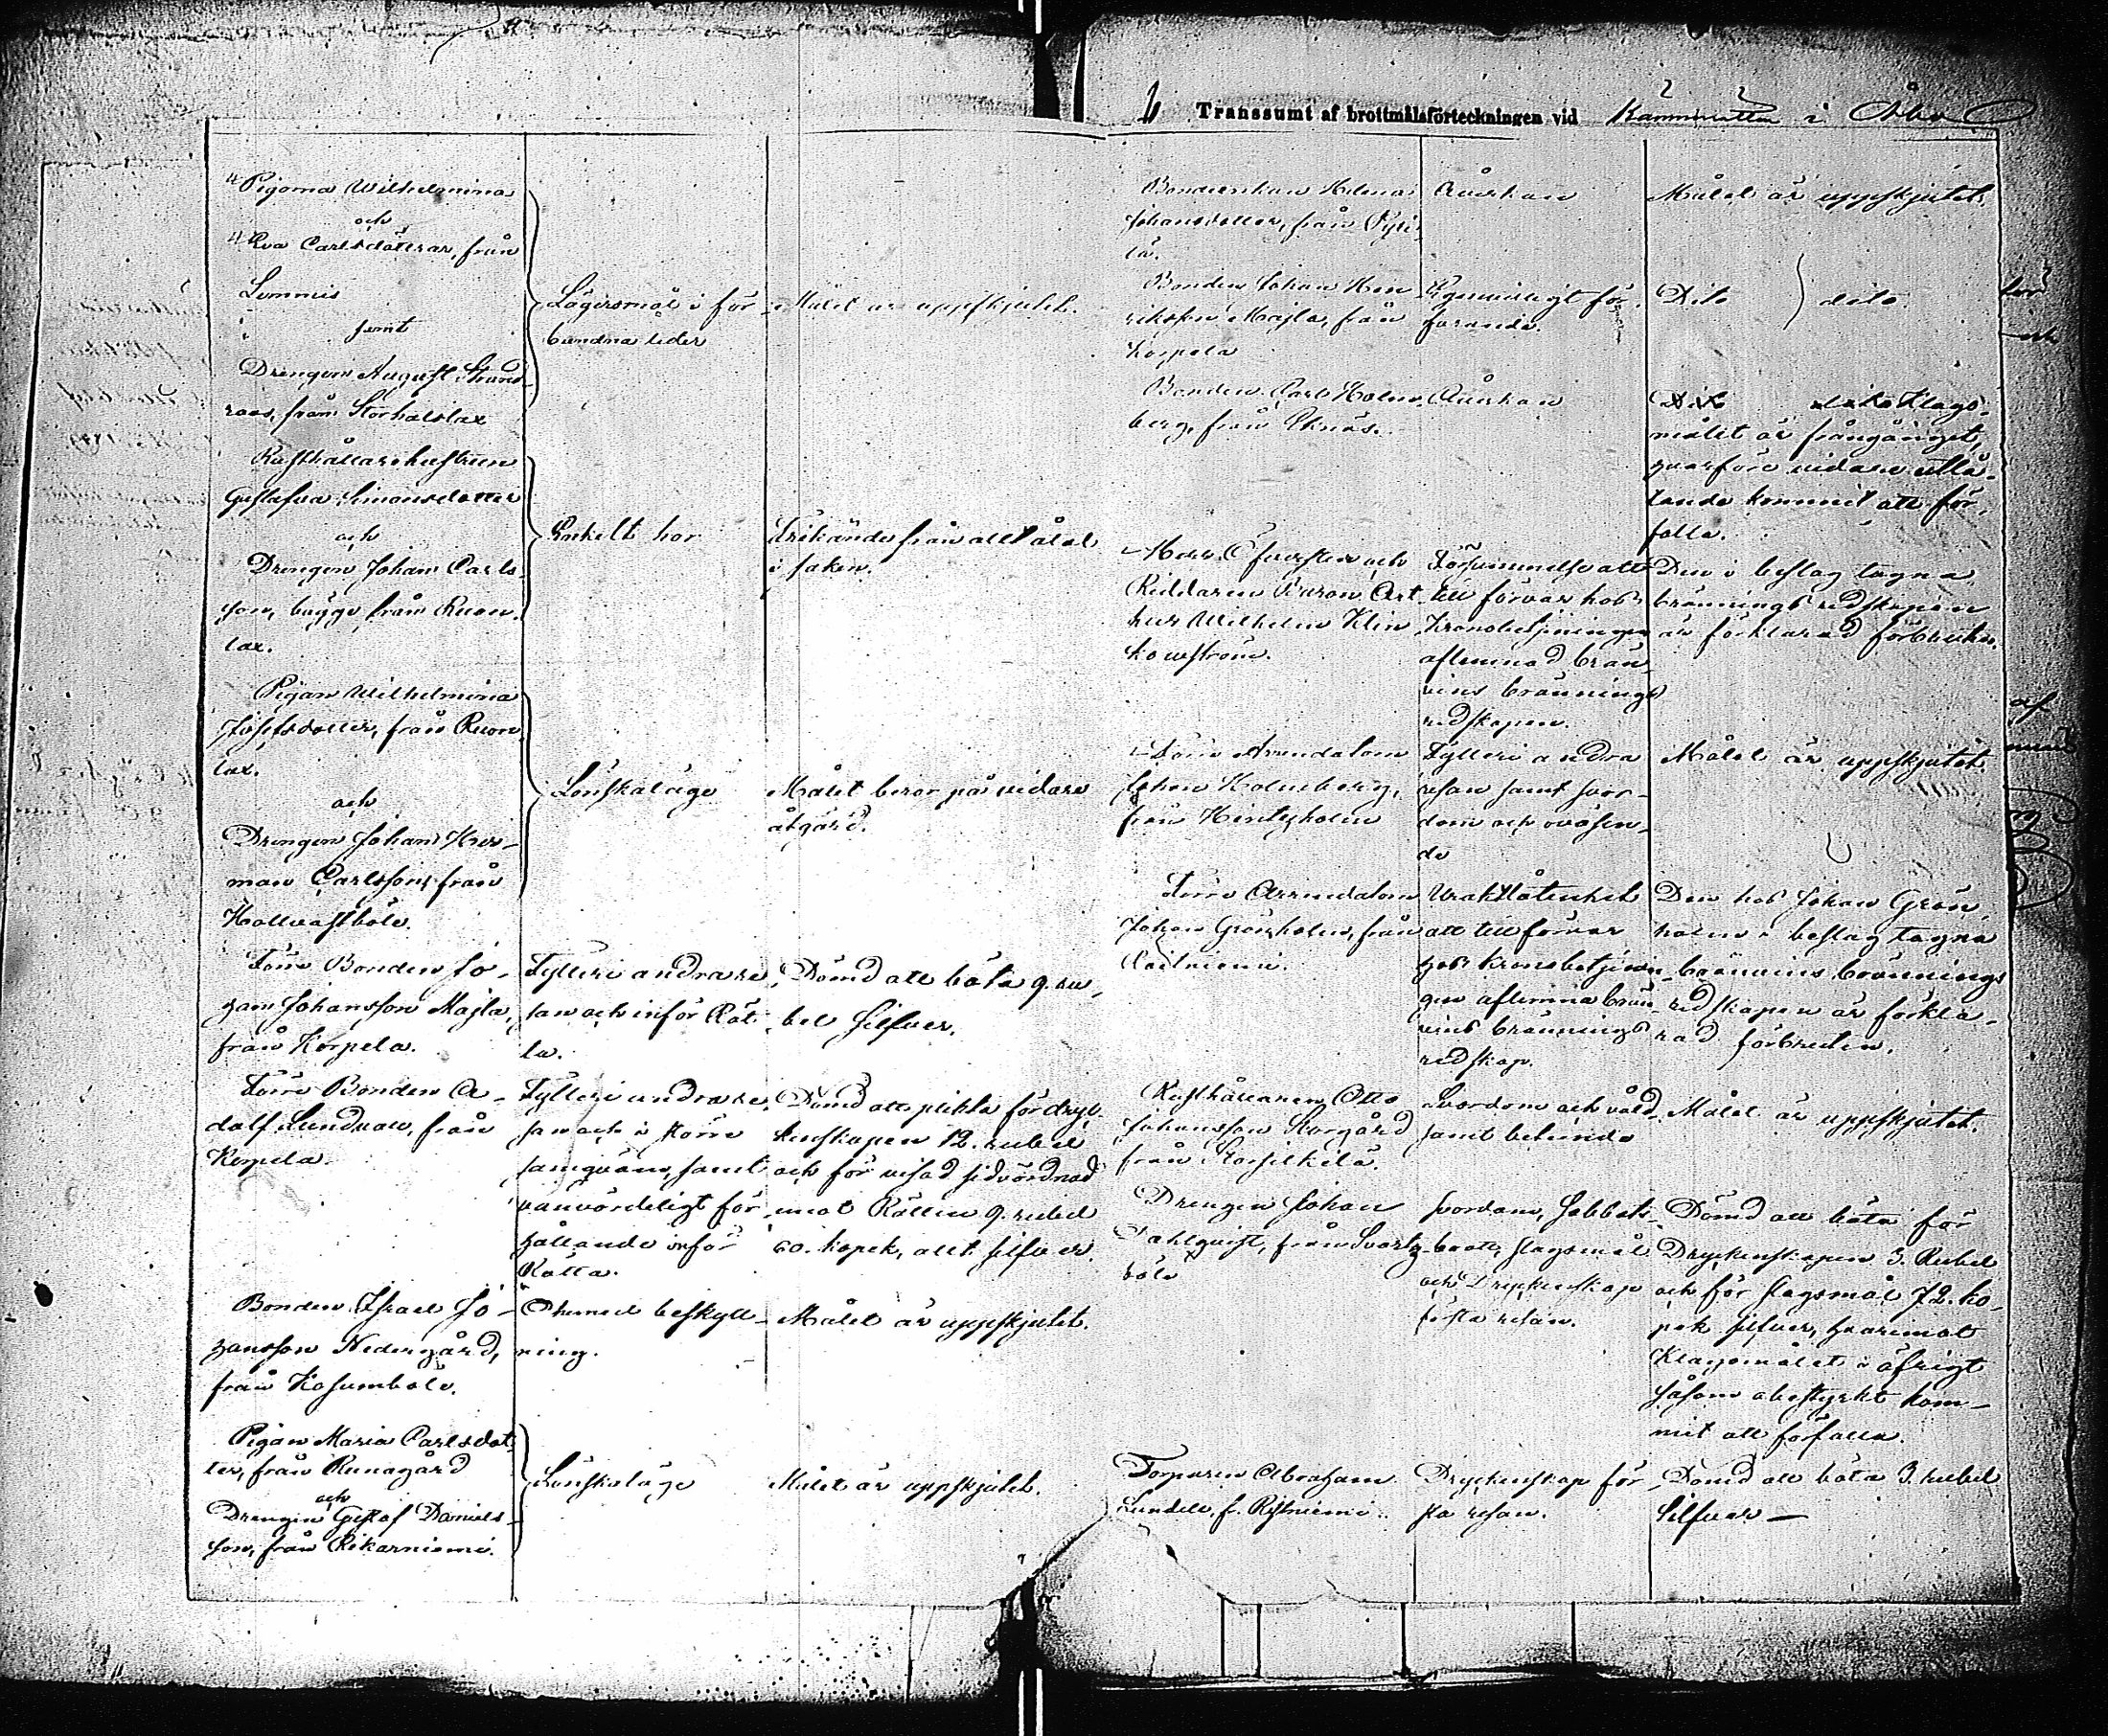 Pigorna Wilhelmina
och
Eva Carlsdöttrar, från
Lemmis
samt
Drengen August Strand-
roos, från Storhalslax
Lägersmål i för-
bundna leder
Målet är uppskjutet.
Rusthållarehustrun
Gustafva Simonsdotter
och
Drengen Johan Carls-
son, bägge från Ruon-
lax.
Enkelt hor
Frikände från allt åtal
i saken.
Pigan Wilhelmina
Josefsdotter, från Ruon-
lax.
och
Drengen Johan Her-
man Carlsson, från
Hallvastböle.
Lönskaläge
Målet beror på vidare
åtgärd.
Förre Bonden Jo-
han Johansson Majla,
från Korpela.
Fylleri andra re-
san och inför Rät-
ta.
Dömd att böta 9. ru-
bel silfver.
Förre Bonden A-
dolf Lundvan, från
Korpela.
Fylleri andra re-
san och i större
samqväm, samt
vanvördeligt för-
hållande inför
Rätta.
Dömd att plikta för dryc-
kenskapen 12. rubel
och för visad sidvördnad
mot Rätten 9. rubel
60. kopek, allt silfver.
Bonden Israel Jo-
hansson Nedergård,
från Kasumböle.
Okunnd beskyll-
ning.
Målet är uppskjutet.
Pigan Maria Carlsdot-
ter, från Runagård
och
Drengen Gustaf Daniels-
son, från Rikarniemi.
Lönskaläge
Målet är uppskjutet.
Transsumt af brottmålsförteckningen vid Kämnersrätten i Åbo
Bondeenkan Helena
Johansdotter, från Pyti-
lä.
Åverkan
Målet är uppskjutet.
Bonden Johan Hen-
riksson Majla, från
Korpela
Egenvilligt för-
farande.
Dito dito
Bonden Carl Holm-
berg, från Eknäs.
Åverkan
Dito dito Klago-
målet är frångånget,
hvarföre vidare utlå-
tande kommit att för-
falla.
Herr Öfversten och
Riddaren Baron Art-
hur Wilhelm Klin-
kowström.
Försummelse att
till förvar hos
Kronobetjeningen
aflemnad brän-
vins brännings
redskapen.
Den i beslag tagna
bränningsredskapen
är förklarad förbruten.
Förre Arrendatorn
Johan Holmberg,
från Kintyholm
Fylleri andra
resan samt svor-
dom och oväsen-
de
Målet är uppskjutet.
Förre Arrendatorn
Johan Grönholm, från
Laitniemi.
Uraktlåtenhet
att till förvar
hos Kronobetjenin-
gen aflemna brän-
vins brännings
redskap.
Den hos Johan Grön-
holm i beslag tagna
bränvins brännings
redskapen är förkla-
rad förbruten.
Rusthållaren Otto
Johansson Storgård
från Storsilkilä.
Svordom och våld
samt beteende
Målet är uppskjutet.
Drengen Johan
Dahlqvist, från Svartz-
böle
Svordom, Sabbats-
brott, slagsmål
och Dryckenskap
första resan.
Dömd att böta för
Dryckenskapen 3. Rubel
och för slagsmål 72. ko-
pek silfver, hvaremot
Klagomålet i öfrigt
såsom obestyrkt kom-
mit att förfalla.
Torparen Abraham
Lundell, f. Ristniemi.
Dryckenskap för-
sta resan.
Dömd att böta 3. rubel
silfver